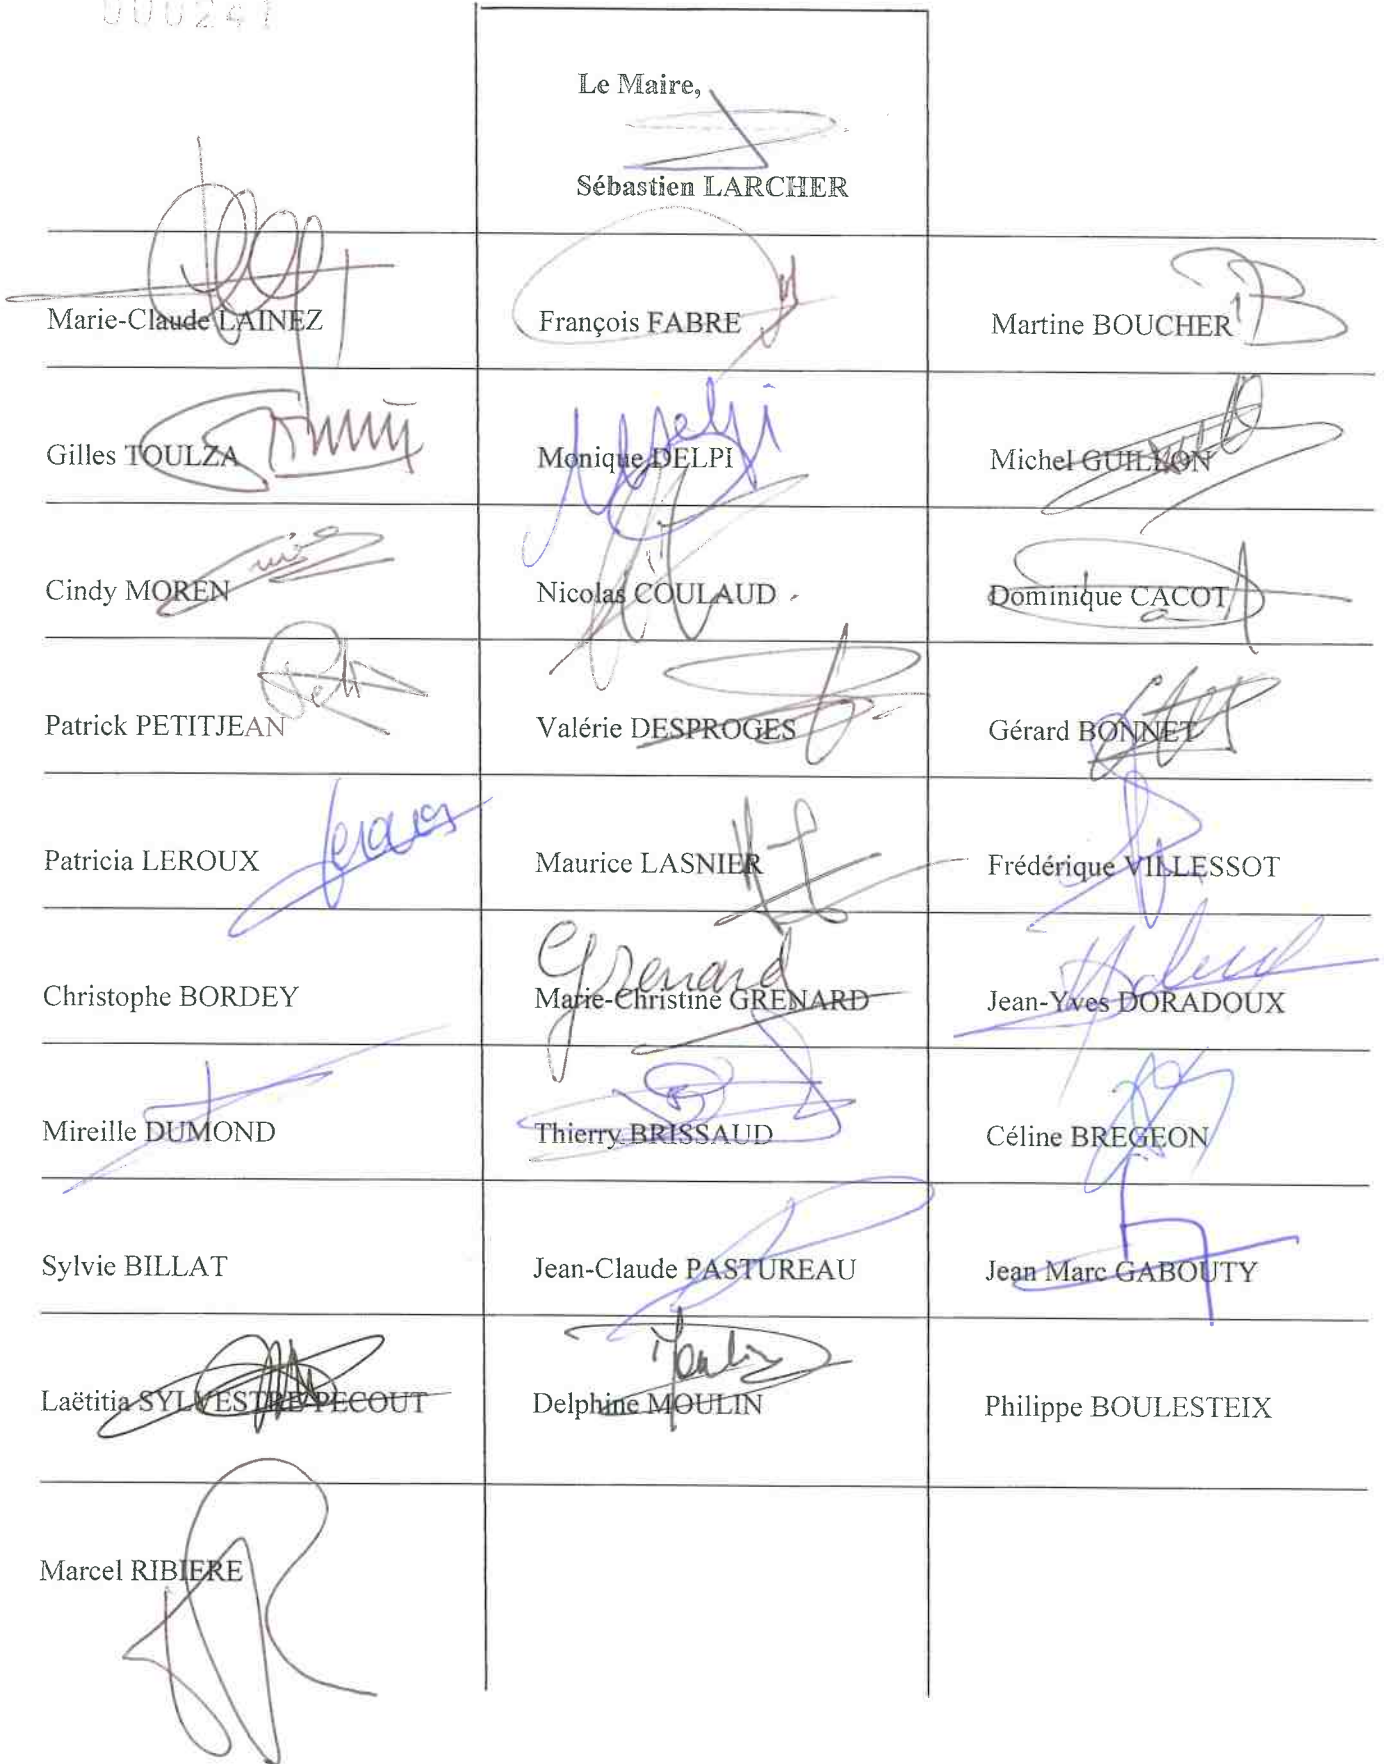 000241
Le Maire,
Sébastien LARCHER
Marie-Claude LAINEZ
François FABRE
Martine BOUCHER
Gilles TOULZA
Monique DELPI
Michel GUILLON
Cindy MOREN
Nicolas COULAUD
Dominique CACOT
Patrick PETITJEAN
Valérie DESPROGES
Gérard BONNET
Patricia LEROUX
Maurice LASNIER
Frédérique VILLESSOT
Christophe BORDEY
Grenard
Marie-Christine GRENARD
Jean-Yves DORADOUX
Mireille DUMOND
Thierry BRISSAUD
Céline BREGEON
Sylvie BILLAT
Jean-Claude PASTUREAU
Jean Marc GABOUTY
Laëtitia SYLVESTRE PECOUT
Delphine MOULIN
Philippe BOULESTEIX
Marcel RIBIERE